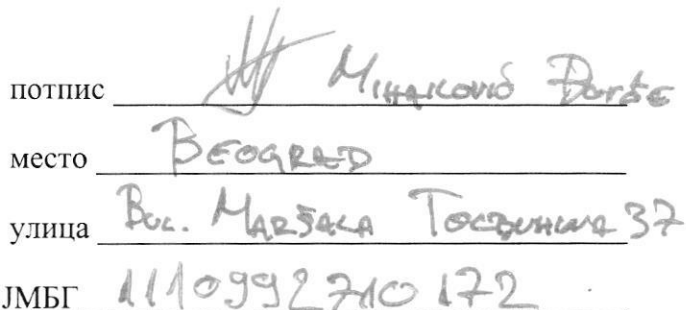 потпис Mihajlović Đorđe
место BEOGRAD
улица Bul. MARŠALA TOLBUHINA 37
ЈМБГ 1110992710172